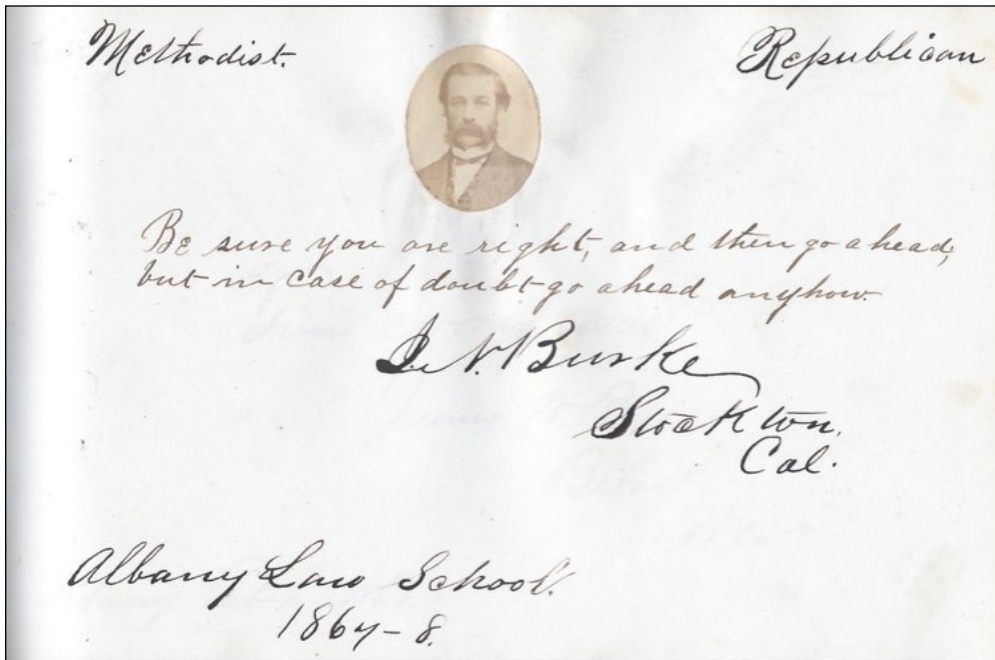 Methodist.
Republican
Be sure you are right, and then go ahead,
but in case of doubt go ahead anyhow.
J. N. Burke
Stockton.
Cal.
Albany Law School.
1867-8.